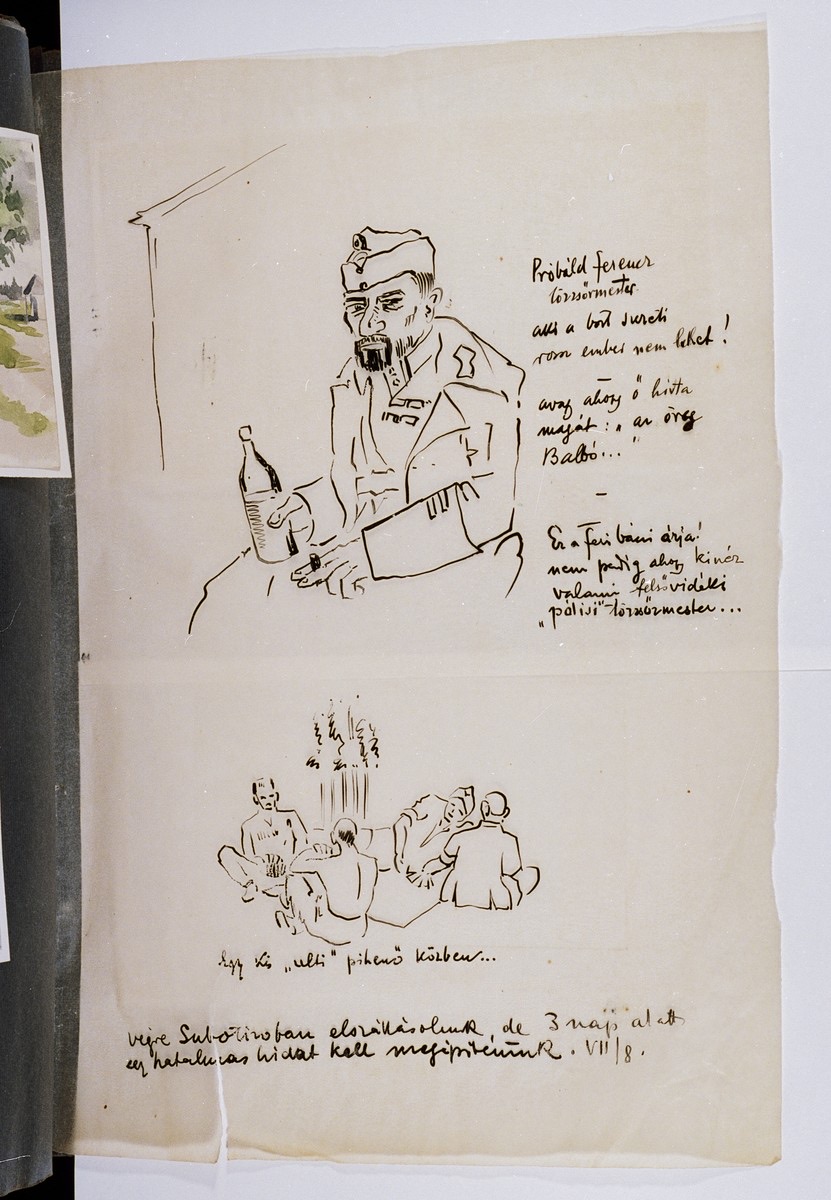 Próbáld Ferenc
törzsőrmester
aki a bort szereti
rossz ember nem lehet!
avagy ahogy ő hívta
magát: „az öreg
Balbó..."
–
Ez a Feri bácsi
nem pedig ahogy kinéz
valami felsővidéki
„ törzsőrmester...
Egy kis „ulti" pihenő közben...
végre Subotivoban elszállásolnuk, de 3 nap alatt
egy hatalmas hidat kell megépítenünk. VII/8.